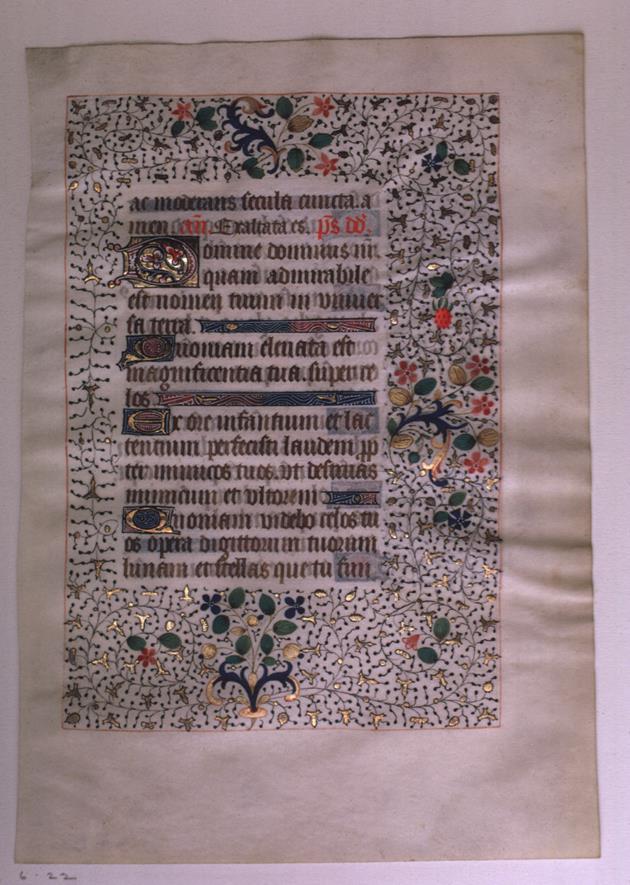 ac moderans secula cuncta. a
men. añ. Exaltata es. ps dd.
Domine dominus nr̄
quam admirabile
est nomen tuum in vniuer
sa terra.
Quoniam eleuata est
magnificentia tua. super ce
los
Ex ore infantium et lac
tentium perfecisti laudem pp
ter inimicos tuos. vt destruas
inimicum et vltorem
Quoniam videbo celos tu
os opera digitorum tuorum
lunam et stellas que tu fun
6 · 22